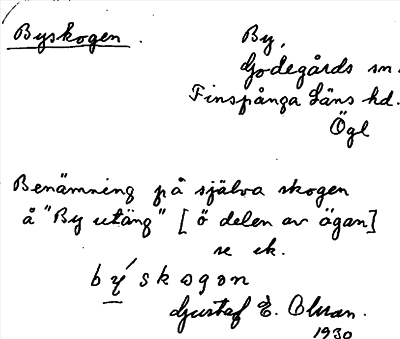 Byskogen. By,
Godegårds sn.
Finspånga Läns hd.
Ögl
Benämning på själva skogen
å "By utäng" [ö delen av ägan]
se ek.
býskogən
Gustaf E. Olsson.
1930